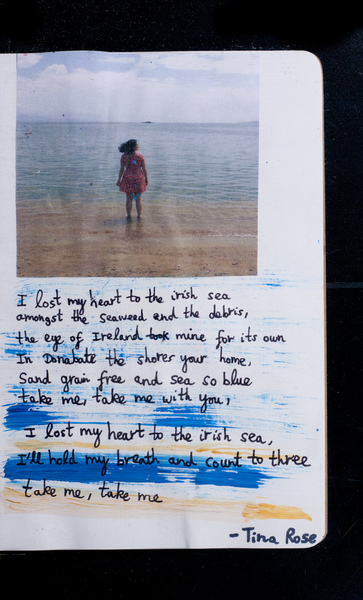 I lost my heart to the irish sea
amongst the seaweed and the debris,
the eye of Ireland took mine for its own
In Donabate the shores your home,
Sand grain free and sea so blue
take me, take me with you,
I lost my heart to the irish sea,
I'll hold my breath and count to three
take me, take me
- Tina Rose